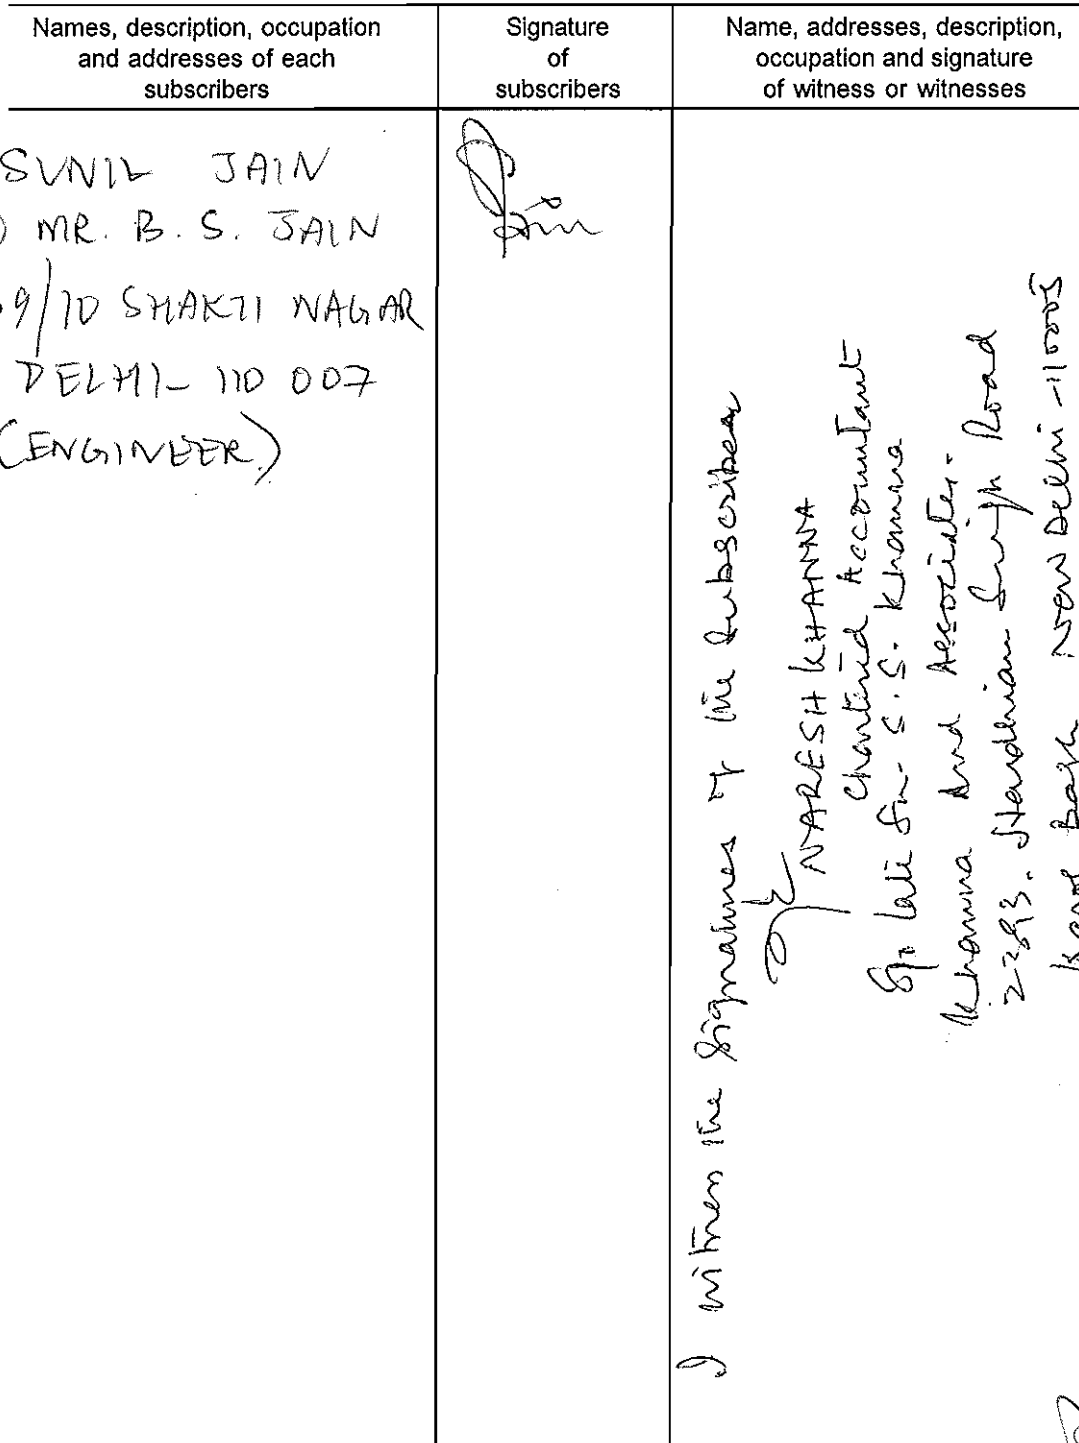 Names, description, occupation
and addresses of each
subscribers
Signature
of
subscribers
Name, addresses, description,
occupation and signature
of witness or witnesses
SUNIL JAIN
) MR. B. S. JAIN
9/10 SHAKTI NAGAR
DELHI- 110 007
(ENGINEER)
I witness the Signatures of the Subscribers
NARESH KHANNA
Chartered Accountant
S/o Late Sh. S.S. Khanna
Khanna And Associates.
2293. Hardhian Singh Road
Karol Bagh New Delhi -110005